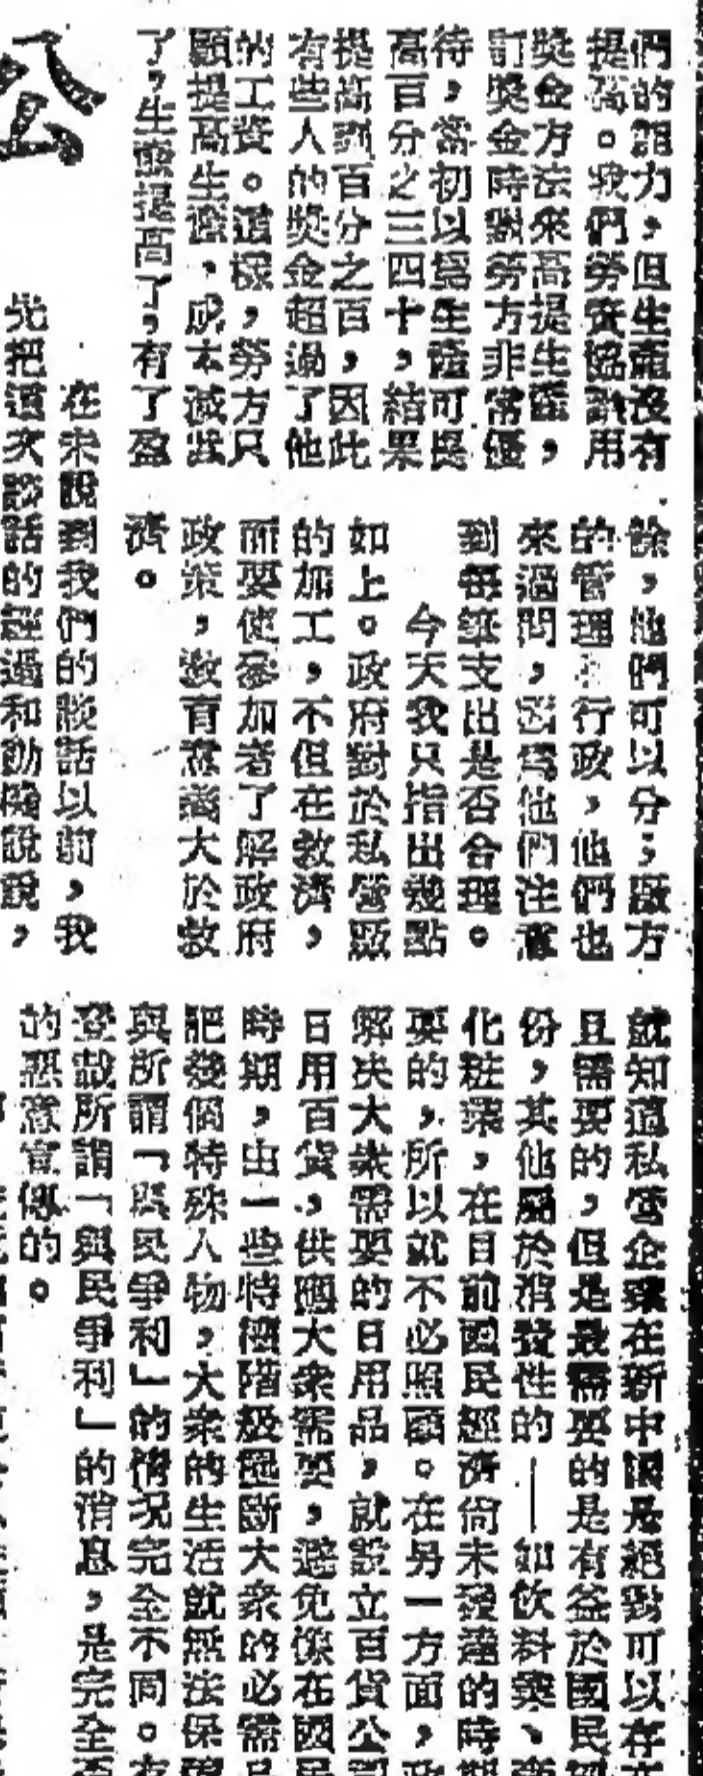 們的能力，但生產沒有
提高。我們勞資協議用
獎金方法來高提生產，
訂獎金時對勞方非常優
待，當初以爲生產可提
高百分之三四十，結果
提高到百分之百，因此
有些人的獎金超過了他
的工資。這樣，勞方只
顧提高生產，成本減低
了，生產提高了，有了盈
餘，他們可以分；廠方
的管理 行政，他們也
來過問，因爲他們注意
到每筆支出是否合理。
今天我只指出幾點
如上。政府對於私營廠
的加工，不但在救濟，
而要使參加者了解政府
政策，教育意義大於救
濟。
公
在未說到我們的談話以前，我
先把這次談話的經過和動機說說，
就知道私營企業在新中國是絕對可以存在
且需要的，但是最需要的是有益於國民
份，其他屬於消費性的——如飲料業、
化粧業，在目前國民經濟尚未發達的時期
要的，所以就不必照顧。在另一方面，政
解决大衆需要的日用品，就設立百貨公司
日用百貨，供應大衆需要，避免像在國民
時期，由一些特權階級壟斷大衆的必需品
肥幾個特殊人物，大衆的生活就無法保障
與所謂「與民爭利」的情况完全不同。
登載所謂「與民爭利」的消息，是完全
的惡意宣傳的。